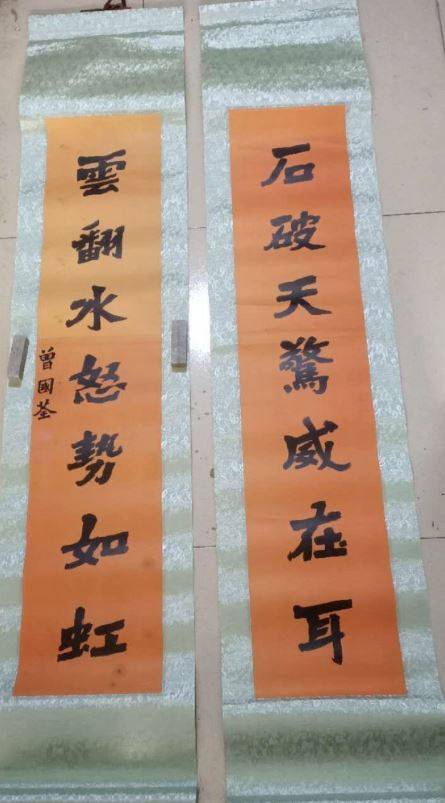 石破天驚威在耳
雲翻水怒勢如虹
曾國荃